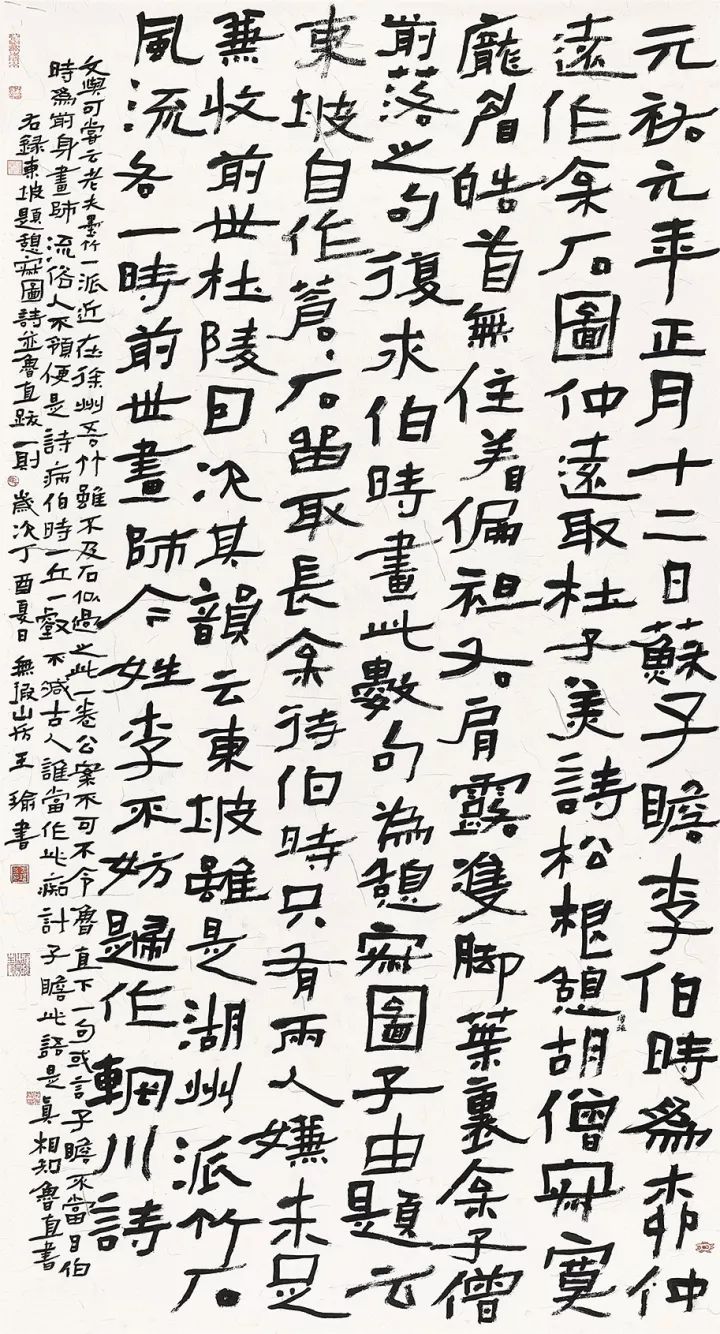 元祐元年正月十二日蘇子瞻李伯時為柳仲
遠作枀石圖仲遠取杜子美詩松根憩胡僧寂寞
龐眉皓首無住著偏袒右肩露雙脚葉裏枀子僧
前落之句復求伯時畫此數句為憩寂圖子由題云
東坡自作蒼、石留取長枀待伯時只有兩人嫌未足
兼收前世杜陵囙次其韻云東坡雖是湖州派竹石
風流各一時前世畫師今姓李不妨題作輞川詩
文與可嘗云老夫墨竹一派近在徐州吾竹雖不及石似過之此一卷公案不可不令魯直下一句或言子瞻不當目伯
時為前身畫師流俗人不領便是詩病伯時一丘一壑不減古人誰當作此痴計子瞻此語是真相知魯直書
右錄東坡題憩寂圖詩並魯直跋一則 歲次丁酉夏日 無假山房王瑜書